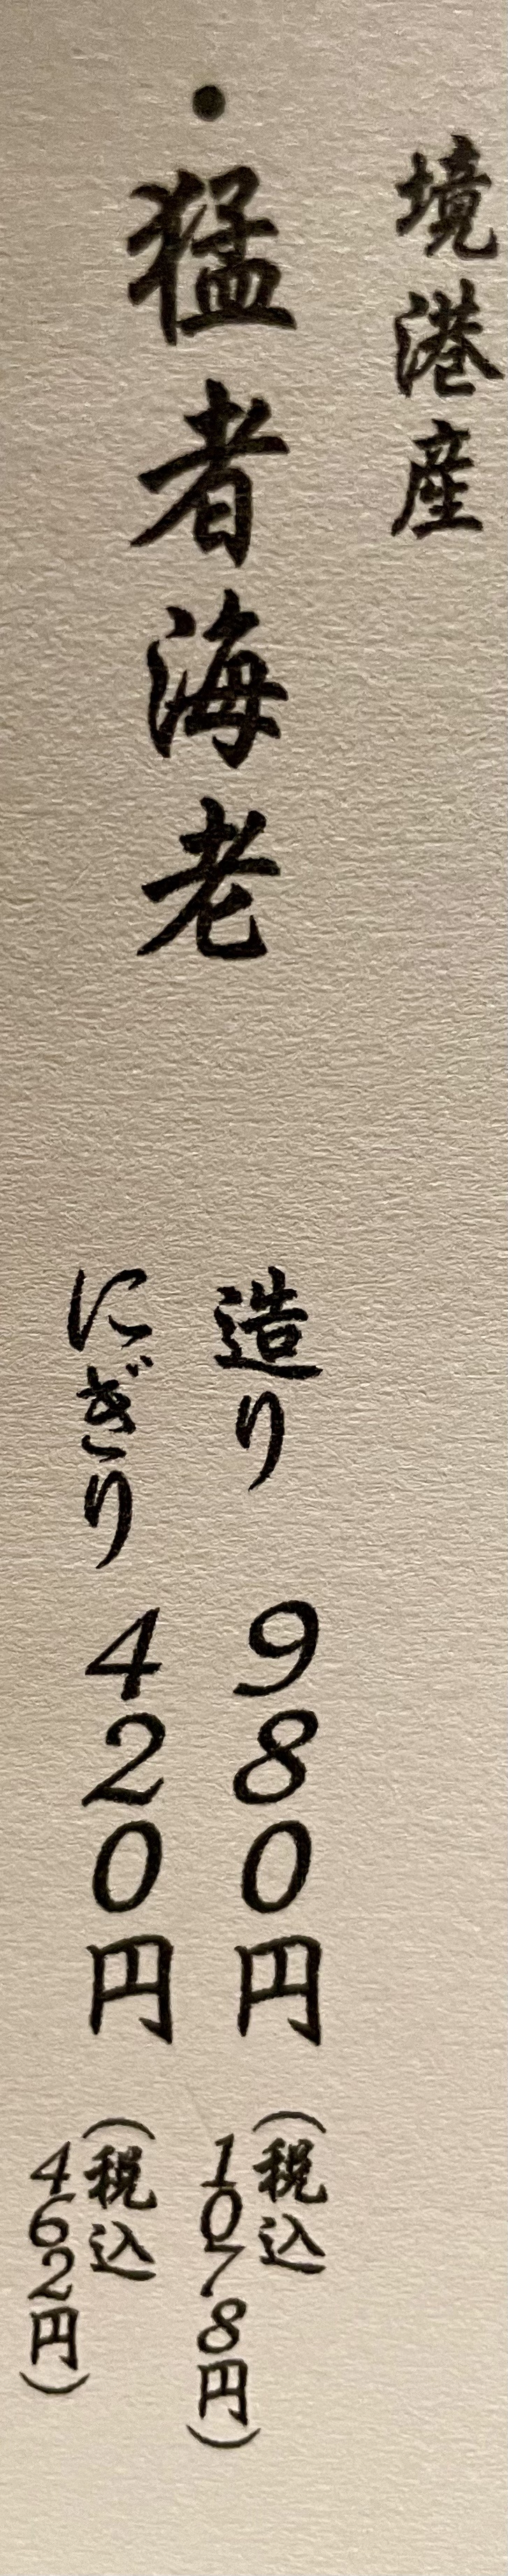 境港産
・猛者海老
造り 980円 (税込1078円)
にぎり 420円 (税込462円)